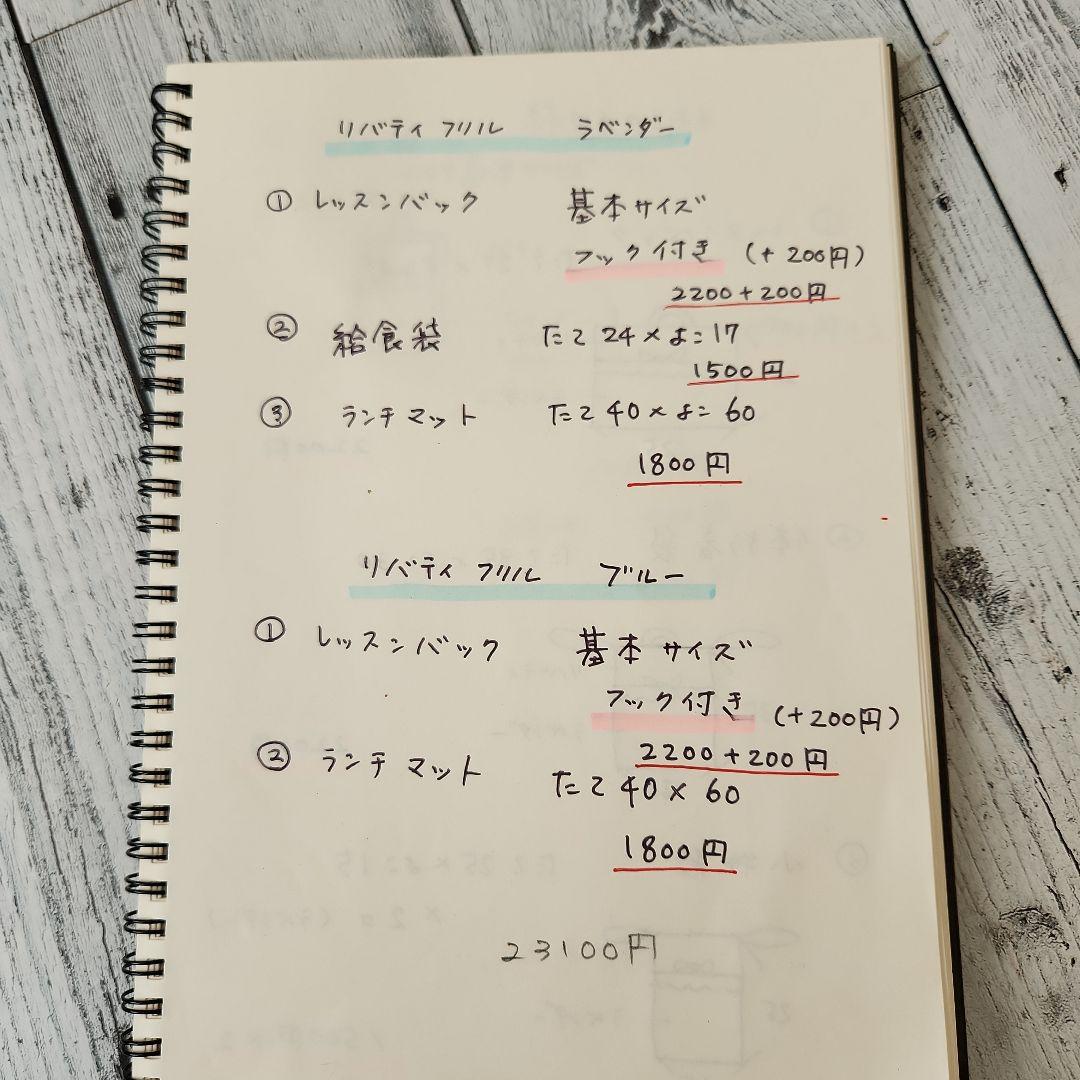 リバティフリル ラベンダー
① レッスンバック 基本サイズ
フック付き (+200円)
2200+200円
② 給食袋 たて24×よこ17
1500円
③ ランチマット たて40×よこ60
1800円
リバティフリル ブルー
① レッスンバック 基本サイズ
フック付き (+200円)
2200+200円
② ランチマット たて40×60
1800円
23100円